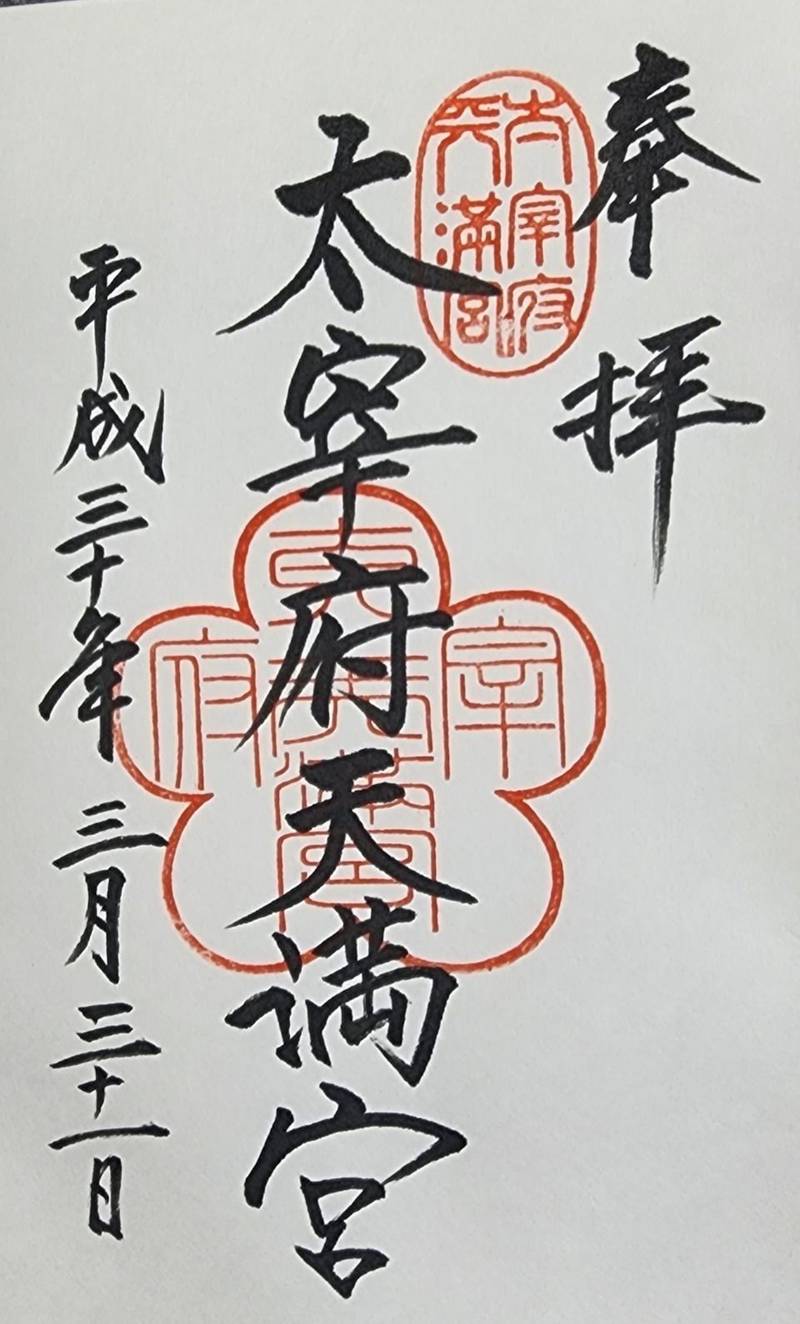 奉拝
太宰府
天満宮
太宰府天満宮
宰
府
平成三十年三月三十一日